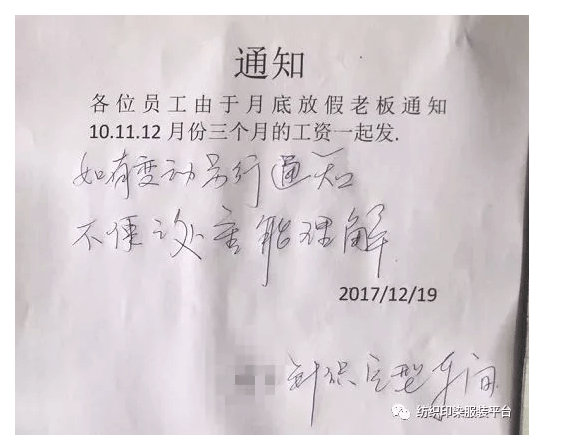 通知
各位员工由于月底放假老板通知
10.11.12月份三个月的工资一起发.
如有变动另行通知
不便之处望能理解.
2017/12/19
针织定型车间
纺织印染服装平台